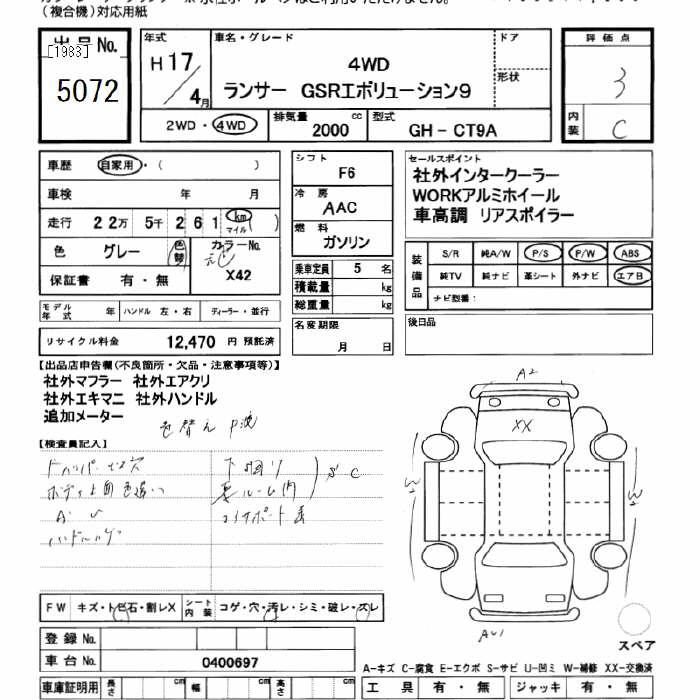 (複合機)対応用紙
出品No.
[1983]
5072
年式
H17/4月
車名・グレード
4WD
ランサー GSRエボリューション9
ドア
形状
2WD・4WD
排気量 2000 cc
型式 GH-CT9A
評価点
3
内装 C
車歴 自家用・( )
車検 年 月
走行 22万 5千261 km マイル ( )
色 グレー 色替 元色
カラーNo. X42
保証書 有・無
シフト F6
冷房 AAC
燃料 ガソリン
乗車定員 5 名
積載量 kg
総重量 kg
名変期限
月 日
セールスポイント
社外インタークーラー
WORKアルミホイール
車高調 リアスポイラー
装備品
S/R 純A/W P/S P/W ABS
純TV 純ナビ 革シート 外ナビ エアB
ナビ型番:
後日品
モデル年式 年 ハンドル 左・右 ディーラー・並行
リサイクル料金 12,470 円 預託済
【出品店申告欄(不良箇所・欠品・注意事項等)】
社外マフラー 社外エアクリ
社外エキマニ 社外ハンドル
追加メーター
色替え
【検査員記入】
ボディ上面色違い
A U
ハンドルハゲ
下廻り
裏ルーム内
コアサポート
S C
A2
XX
W2
W2
AU1
FW キズ・トビ石・割レX
シート内装 コゲ・穴・汚レ・シミ・破レ・スレ
登録No.
車台No. 0400697
スペア
A-キズ C-腐食 E-エクボ S-サビ U-凹ミ W-補修 XX-交換済
車庫証明用 長さ cm 幅 cm 高さ cm
工具 有・無 ジャッキ 有・無